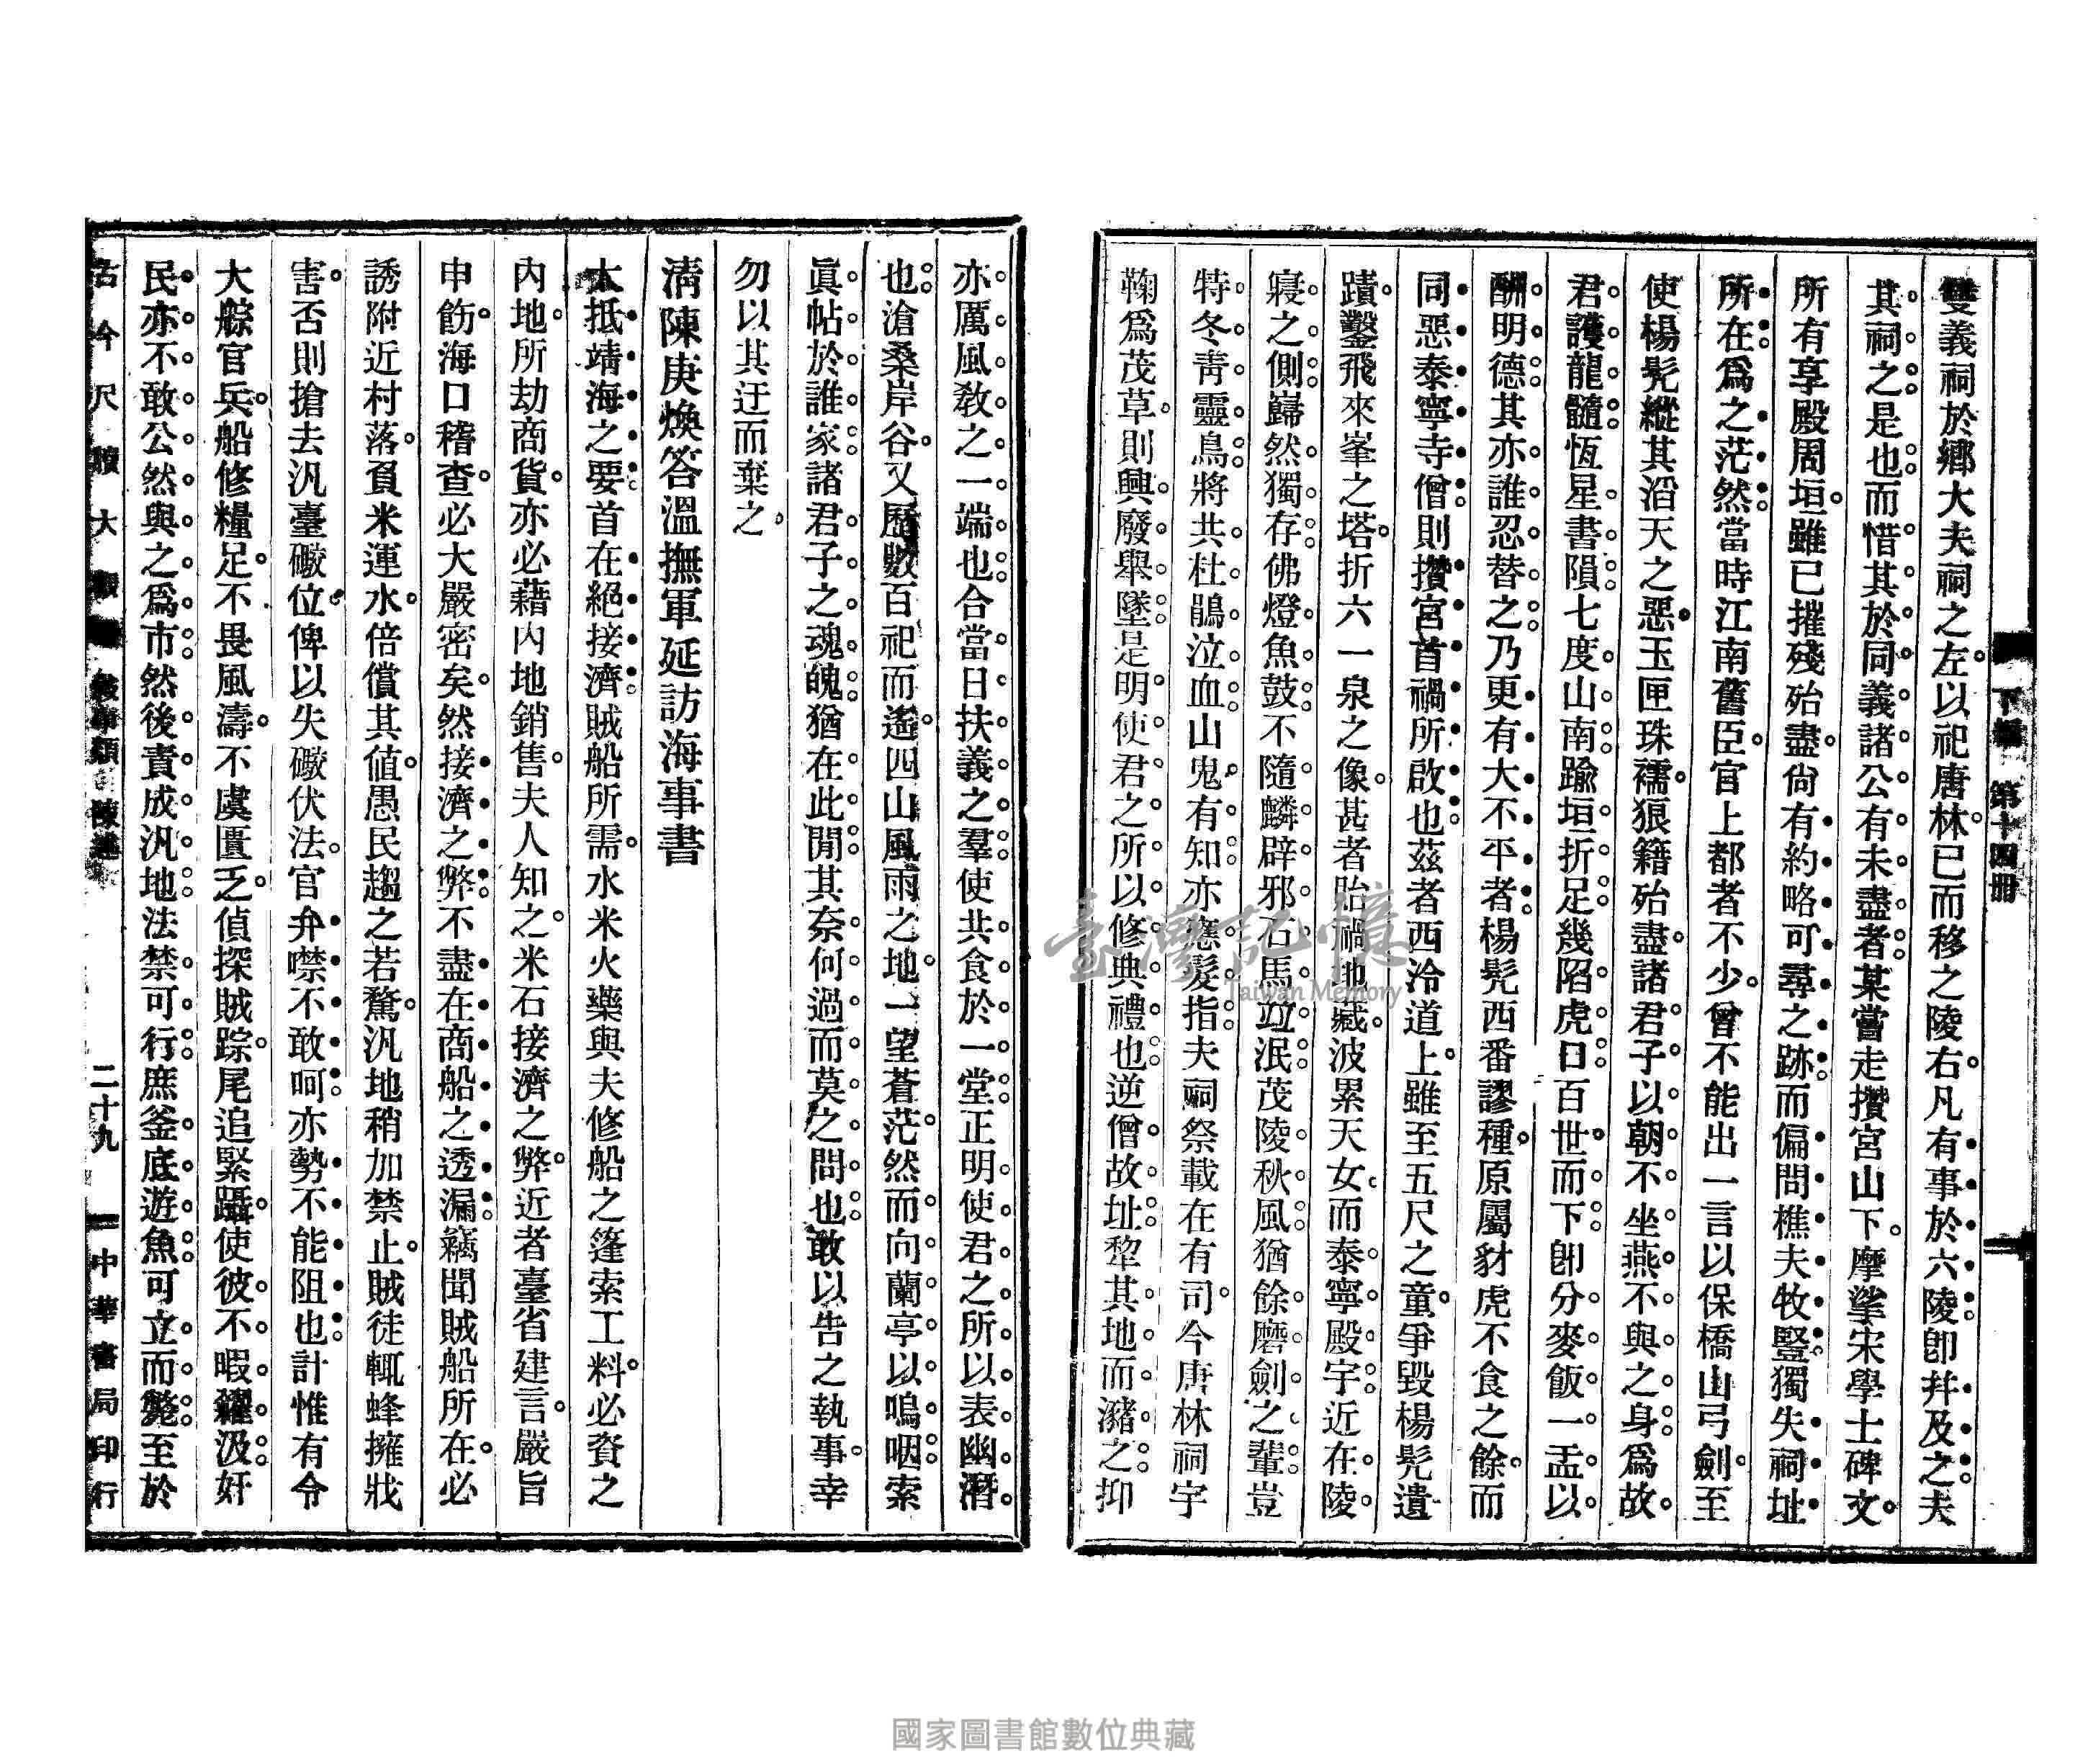 下編 第十四册
雙義祠於鄉大夫祠之左以祀唐林已而移之陵右凡有事於六陵卽幷及之夫
其祠之是也而惜其於同義諸公有未盡者某嘗走攢宮山下摩挲宋學士碑文
所有享殿周垣雖已摧殘殆盡尙有約略可尋之跡而偏問樵夫牧豎獨失祠址
所在爲之茫然當時江南舊臣官上都者不少曾不能出一言以保橋山弓劍至
使楊髡縱其滔天之惡玉匣珠襦狼籍殆盡諸君子以朝不坐燕不與之身爲故
君護龍髓恆星書隕七度山南踰垣折足幾陷虎口百世而下卽分麥飯一盂以
酬明德其亦誰忍替之乃更有大不平者楊髡西番謬種原屬豺虎不食之餘而
同惡泰寧寺僧則攢宮首禍所啟也茲者西泠道上雖至五尺之童爭毀楊髡遺
蹟鑿飛來峯之塔折六一泉之像甚者貽禍地藏波累天女而泰寧殿宇近在陵
寢之側巋然獨存佛燈魚鼓不隨麟辟邪石馬竝泯茂陵秋風猶餘磨劍之輩豈
特冬靑靈鳥將共杜鵑泣血山鬼有知亦應髮指夫祠祭載在有司今唐林祠宇
鞠爲茂草則興廢舉墜是明使君之所以修典禮也逆僧故址犂其地而瀦之抑
亦厲風敎之一端也合當日扶義之羣使共食於一堂正明使君之所以表幽潛
也滄桑岸谷又歷數百祀而遙四山風雨之地一望蒼茫然而向蘭亭以嗚咽索
眞帖於誰家諸君子之魂魄猶在此閒其奈何過而莫之問也敢以告之執事幸
勿以其迂而棄之
清陳庚煥答溫撫軍延訪海事書
大抵靖海之要首在絕接濟賊船所需水米火藥與夫修船之篷索工料必資之
內地所劫商貨亦必藉內地銷售夫人知之米石接濟之弊近者臺省建言嚴旨
申飭海口稽查必大嚴密矣然接濟之弊不盡在商船之透漏竊聞賊船所在必
誘附近村落負米運水倍償其値愚民趨之若鶩汎地稍加禁止賊徒輒蜂擁戕
害否則搶去汎臺礮位俾以失礮伏法官弁噤不敢呵亦勢不能阻也計惟有令
大䑸官兵船修糧足不畏風濤不虞匱乏偵探賊踪尾追緊躡使彼不暇糴汲奸
民亦不敢公然與之爲市然後責成汎地法禁可行庶釜底遊魚可立而斃至於
古今尺牘大觀 敍事類 陳述 二十九 中華書局印行
臺灣記憶
Taiwan Memory
國家圖書館數位典藏